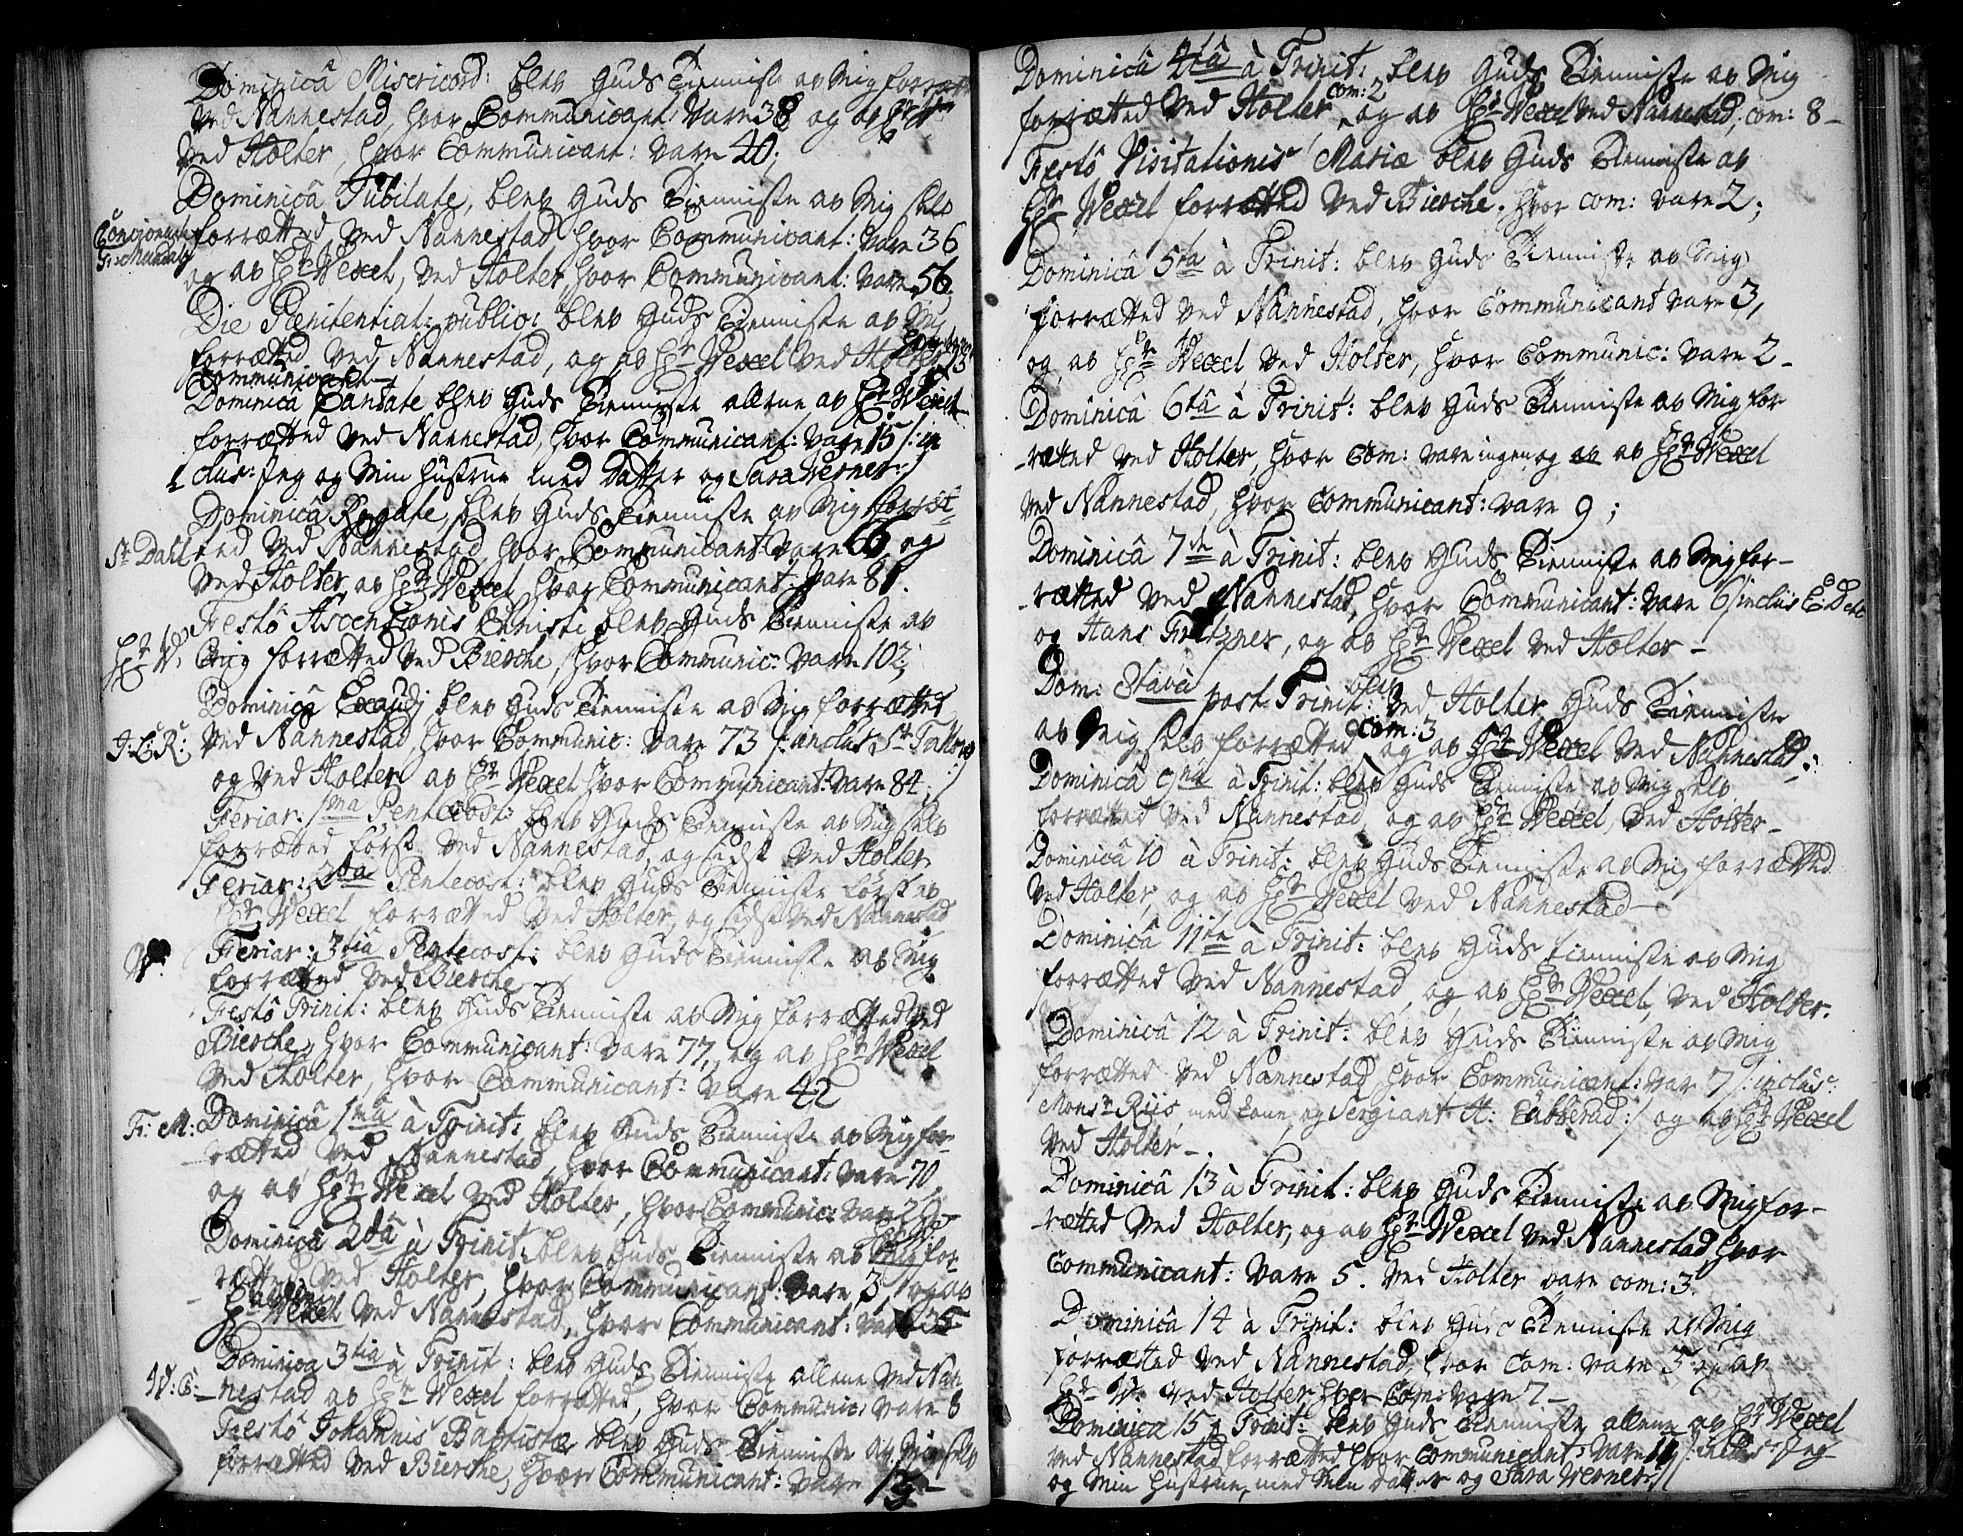 Dominicâ Misericord: blev Guds Tienniste av Mig forrætt
Ved Nannestad, hvor Communicant vare 38 og av Hr
Ved Holter, hvor Communicant: vare 40;
Dominicâ Jubilate, blev Guds Tienniste av Mig selv
forrætted ved Nannestad hvor Communicant: vare 36
Fr: Mundal
og av Hr Wexel, ved Holter, hvor Communicant: vare 56
Die Pænitential: public: blev Guds Tienniste av Mig
forrætted ved Nannestad, og av Hr Wexel ved Holter
Communicant
Dominicâ Cantate blev Guds Tienniste allene av Hr Wexel
forrætted ved Nannestad, hvor Communicant: vare 15 /: in
clus: Jeg og Min Hustrue med Datter og Sara Werner :/
Dominicâ Rogate, blev Guds Tienniste av Mig forræt
St. Dahl
ted ved Nannestad, hvor Communicant vare 66, og
ved Holter av Hr Wexel hvor Communicant: vare 81.
Festô Ascentionis Christi blev Guds Tienniste av
Hr W:
Mig forrætted ved Bierche, hvor Communic: vare 102;
Dominicâ Exaudj blev Guds Tienniste av Mig forrætted
J: L: R:
ved Nannestad, hvor Communic: vare 73 /: inclus: St
og ved Holter av Hr Wexel hvor Communicant: vare 84;
Feriar: 1ma Pentecost: blev Guds Tienniste av Mig selv
forrætted først ved Nannestad, og sidst ved Holter
Feriar: 2da Pentecost: blev Guds Tienniste først av
Hr Wexel forrætted ved Holter, og sidst ved Nannestad
Feriar: 3tiâ Pentecost: blev Guds Tienniste av Mig
forrætted ved Bierche
Festô Trinit: blev Guds Tienniste av Mig forrætted ved
Bierche, hvor Communicant: vare 77, og av Hr Wexel
ved Holter, hvor Communicant: vare 42
Fr: M:
Dominicâ 1mâ à Trinit: blev Guds Tienniste av Mig for-
rætted ved Nannestad, hvor Communicant: vare 70
og av Hr Wexel ved Holter, hvor Communic: vare
Dominicâ 2dâ à Trinit: blev Guds Tienniste av Mig for-
rætted ved Holter, hvor Communicant: vare 3, og av
Hr Wexel ved Nannestad, hvor Communicant: vare 35
Dominica 3tiâ à Trinit: blev Guds Tienniste allene ved Nan
nestad av Hr Wexel forrætted, hvor Communic: vare 8
Festô Johannis Baptistæ blev Guds Tienniste av Mig selv
forrætted ved Bierche, hvor Communicant: vare
Dominicâ 4tâ à Trinit: blev Guds Tienniste av Mig
com: 2
forrætted ved Holter, og av Hr Wexel ved Nannestad, com: 8-
Festô Visitationis Mariæ blev Guds Tienniste av
Hr Wexel forrætted ved Bierche. hvor com: vare 2;
Dominicâ 5ta à Trinit: blev Guds Tienniste av Mig
forrætted ved Nannestad, hvor Communicant vare 3,
og av Hr Wexel ved Holter, hvor Communic: vare 2-
Dominicâ 6tâ à Trinit: blev Guds Tienniste av Mig for
-rætted ved Holter, hvor Com: vare ingen og av av Hr Wexel
ved Nannestad, hvor Communicant: vare 9;
Dominicâ 7de à Trinit: blev Guds Tienniste av Mig for-
-rætted ved Nannestad, hvor Communicant: vare 6 /: inclus
og Hans Fritzner, og av Hr Wexel ved Holter-
blev
Dom: 8tava post Trinit: ved Holter Guds Tienniste
com: 3
av Mig selv forrætted og av Hr Wexel ved Nannestad:
Dominicâ 9nâ à Trinit: blev Guds Tienniste av Mig selv
forrætted ved Nannestad, og av Hr Wexel, ved Holter-
Dominicâ 10 à Trinit: blev Guds Tienniste av Mig forrætted
ved Holter, og av Hr Wexel ved Nannestad-
Dominicâ 11te à Trinit: blev Guds Tienniste av Mig
forrætted ved Nannestad, og av Hr Wexel, ved Holter.
Dominicâ 12 à Trinit: blev Guds Tienniste av Mig
forrætted ved Nannestad, hvor Communicant: var 7 /: inclus:
Monsr Riis, med Kone, og Sergiant A: :/ og av Hr Wexel
ved Holter-
Dominicâ 13 à Trinit: blev Guds Tienniste av Mig for-
-rætted ved Holter, og av Hr Wexel ved Nannestad, hvor
Communicant: vare 5. ved Holter vare com: 3.
Dominicâ 14 à Trinit: blev Guds Tienniste av Mig
forrætted ved Nannestad, hvor Com: vare 5 og av
Hr W: ved Holter, hvor Com: vare 7-
Dominica 15 à Trinit: blev Guds Tienniste allene av Hr Wexel
ved Nannestad forrætted, hvor Communicant: vare 11 /: inclus: Jeg
og Min Hustrue, med Min Datter og Sara Werner :/